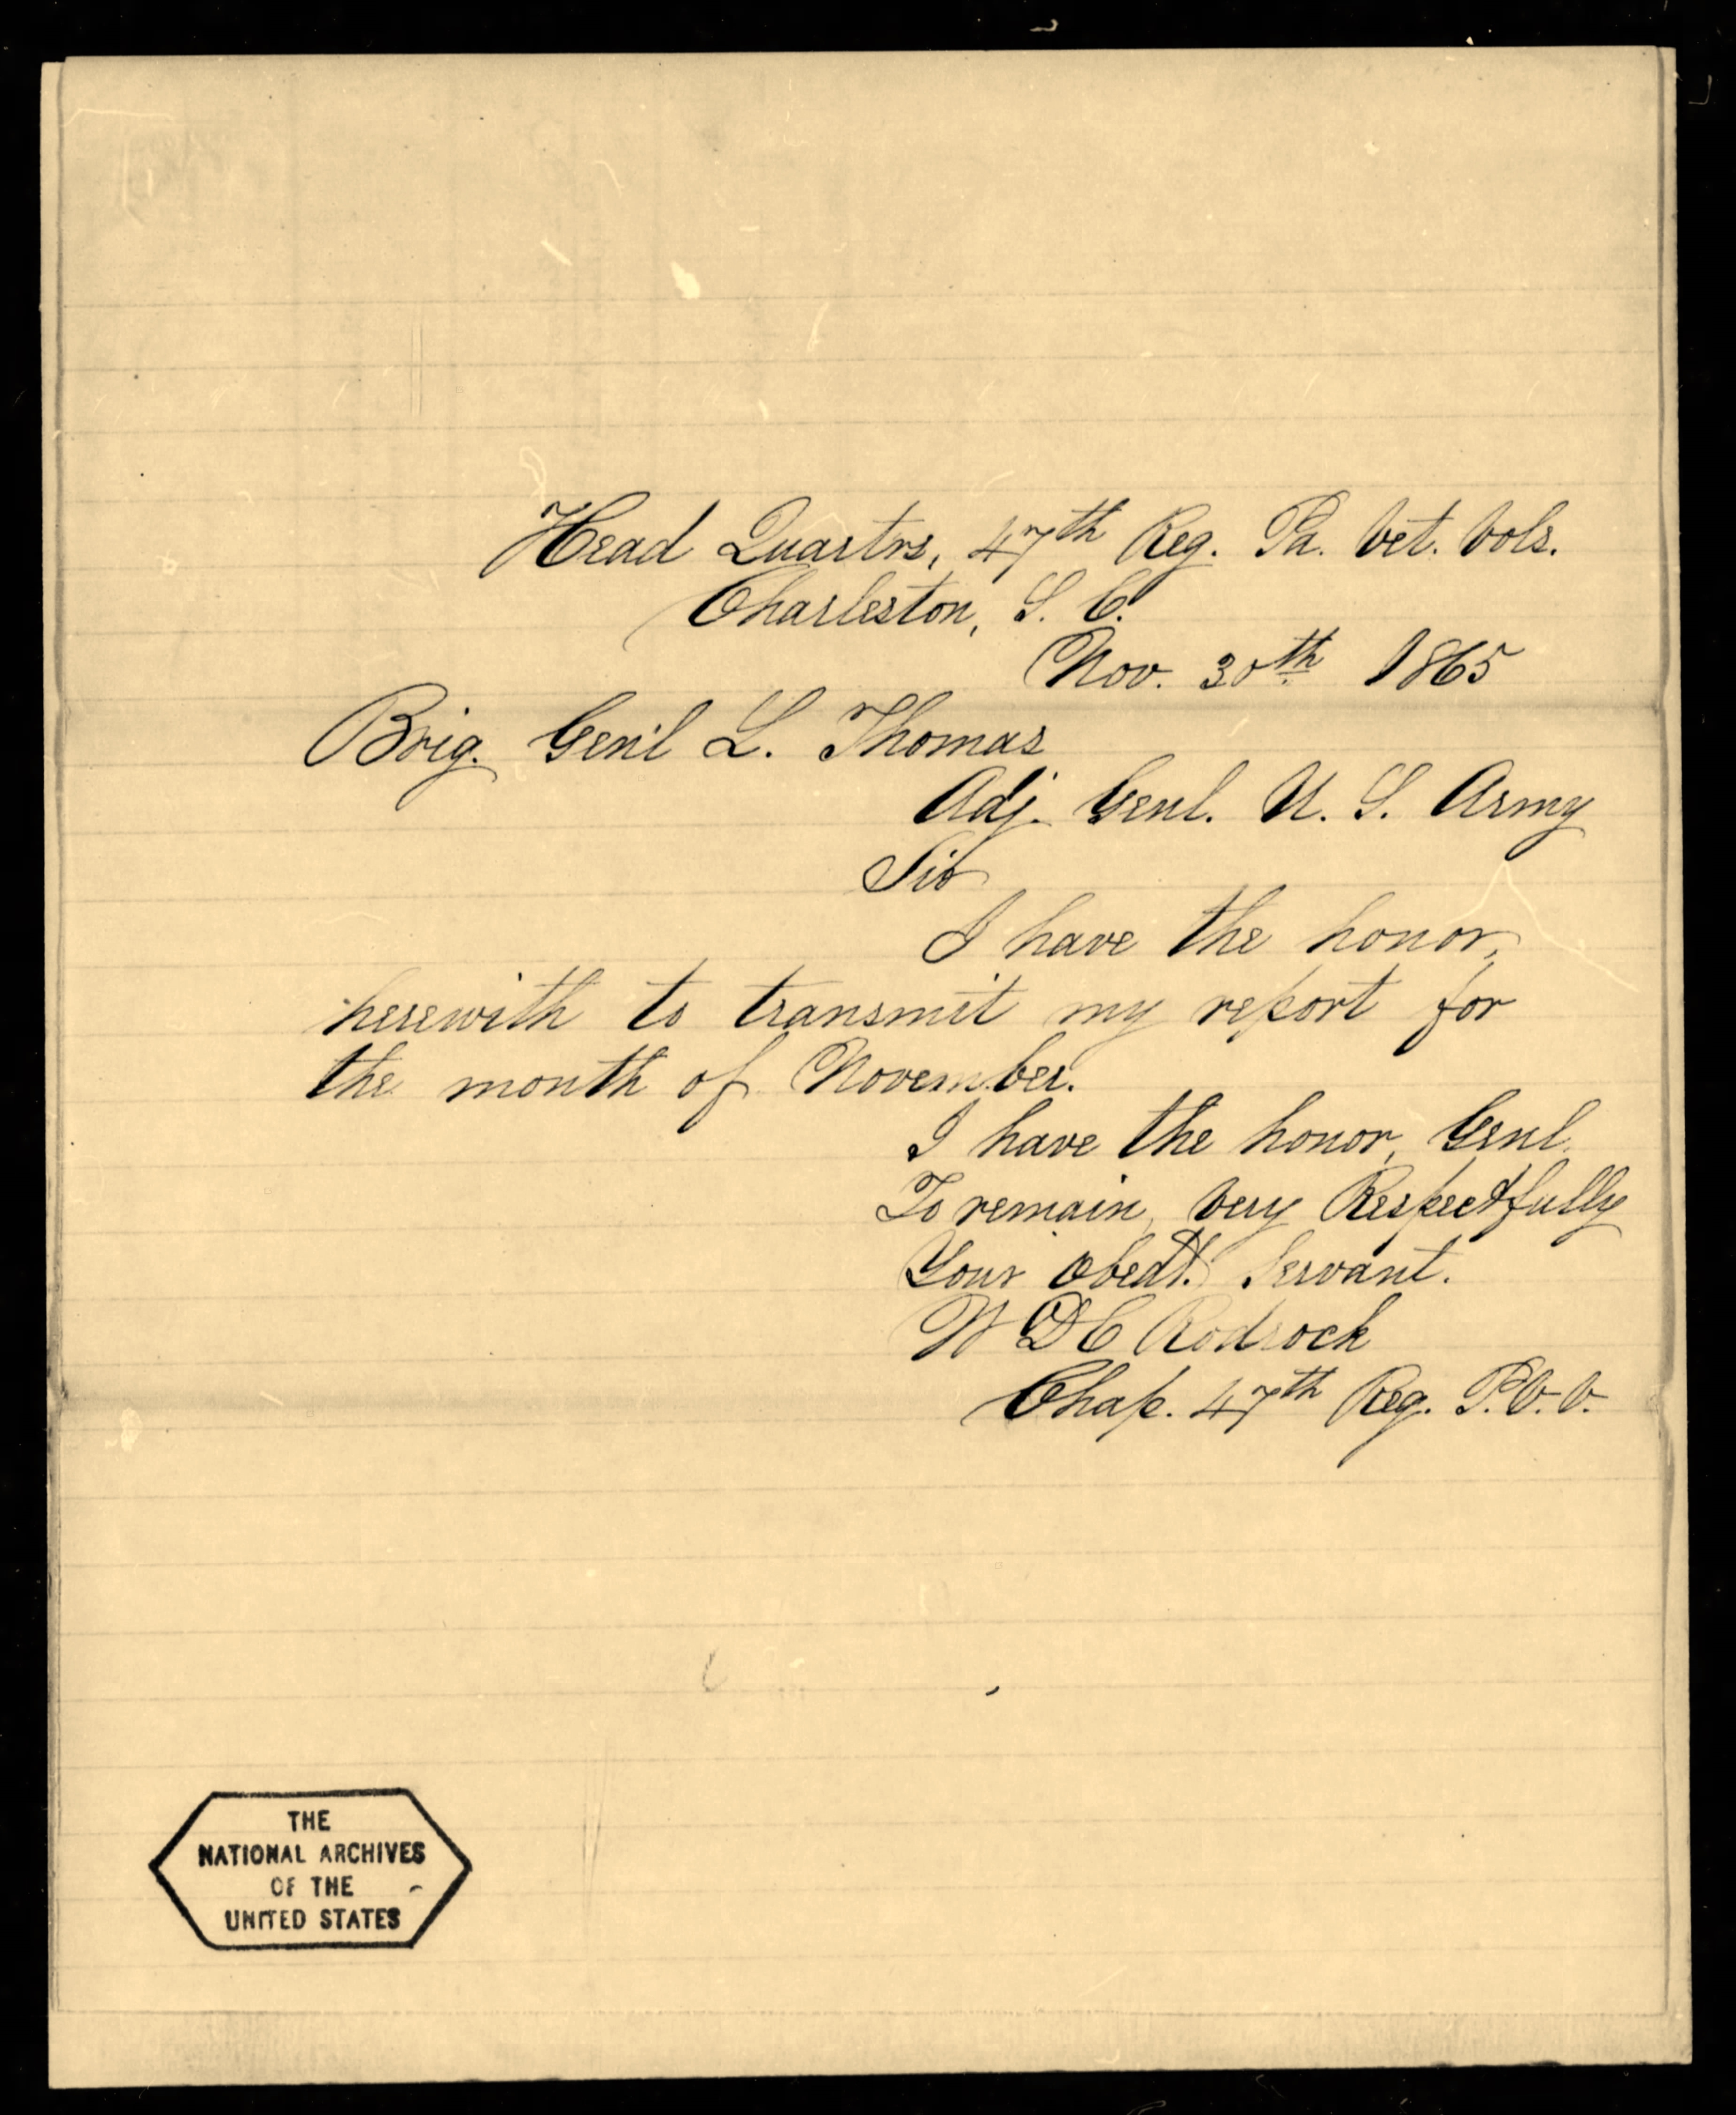 Head Quartrs, 47th Reg. Pa. Vet. Vols.
Charleston, S. C.
Nov. 30th 1865
Brig. Gen'l L. Thomas
Adj. Genl. U. S. Army
Sir
I have the honor,
herewith to transmit my report for
the month of November.
I have the honor, Genl.
To remain, Very Respectfully
Your Obedt. Servant.
W D C Rodrock
Chap. 47th Reg. P. V. V.
THE
NATIONAL ARCHIVES
OF THE
UNITED STATES